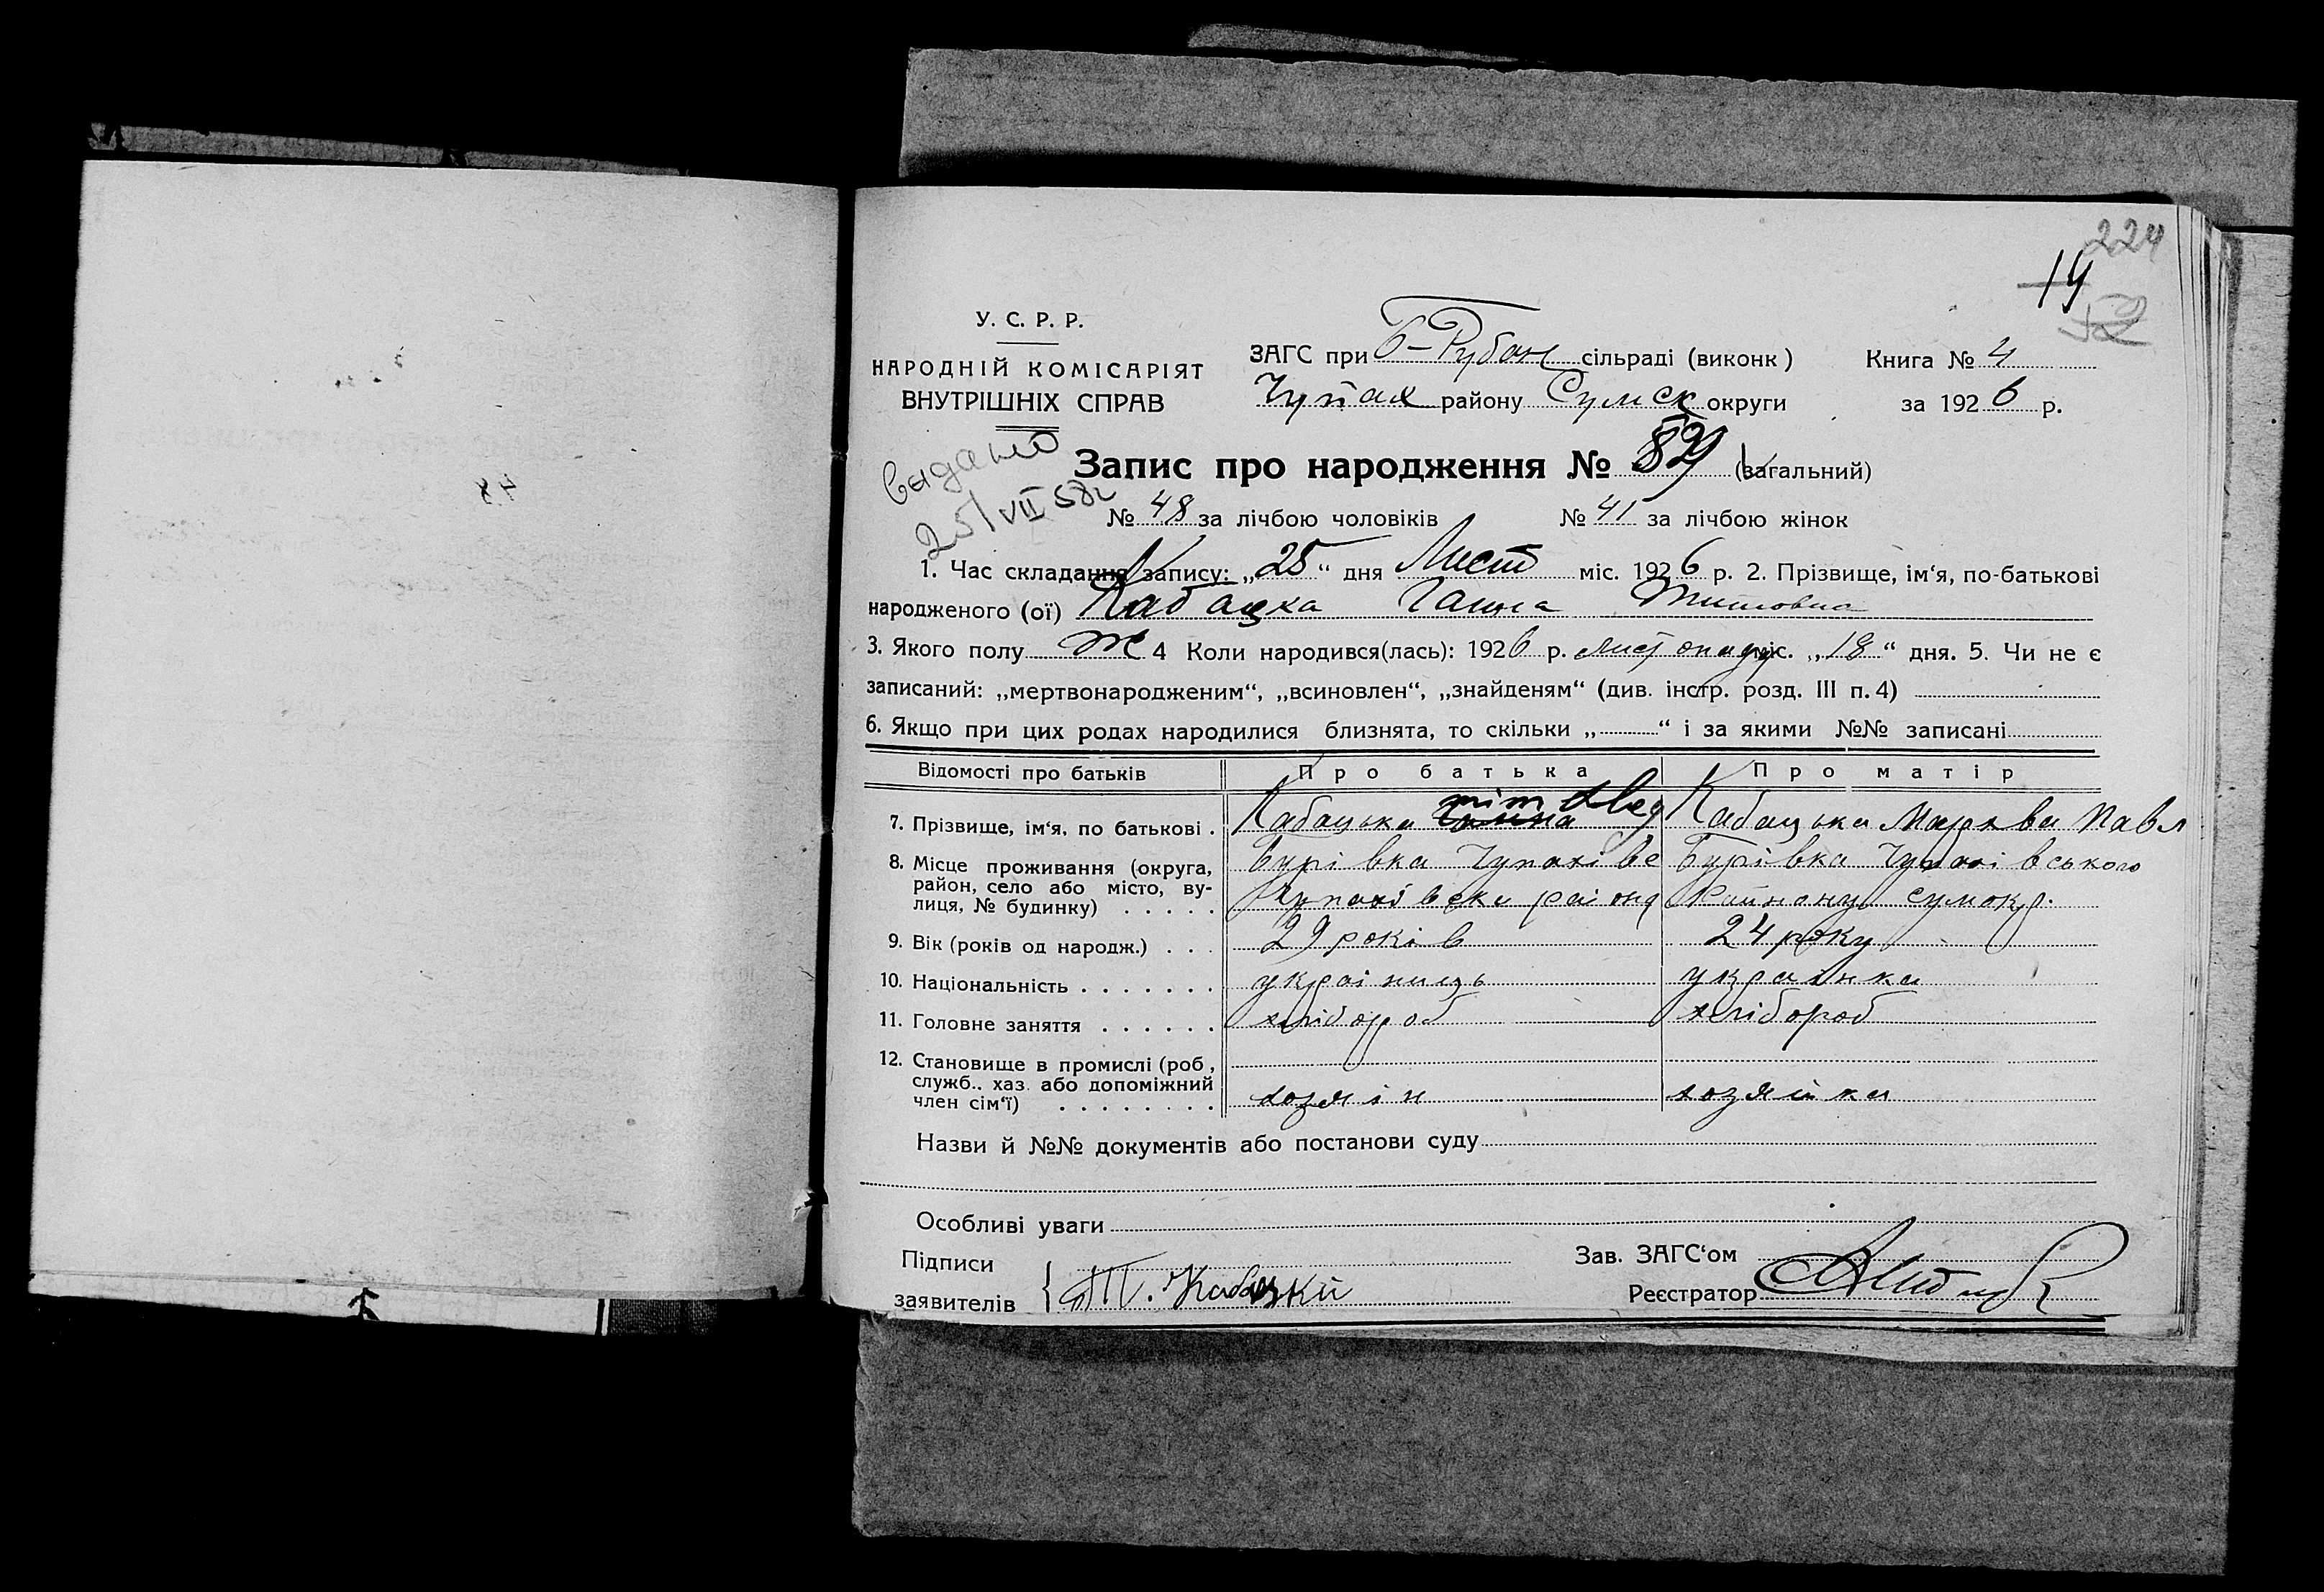 224
14
52
У. С. Р. Р.
НАРОДНІЙ КОМІСАРІЯТ
ВНУТРІШНІХ СПРАВ
ЗАГС при Б-Рубан сільраді (виконк)
Чупах району Сумск округи
Книга № 4
за 1926 р.
выдано
25/VII 58г
Запис про народження № 89 (загальний)
№ 48 за лічбою чоловіків № 41 за лічбою жінок
1. Час складання запису: „25“ дня Лист міс. 1926 р. 2. Прізвище, ім‘я, по-батькові
народженого (ої) Кабацка Ганна Титовна
3. Якого полу ж 4 Коли народився(лась): 1926 р. листопаду міс. „18“ дня. 5. Чи не є
записаний: „мертвонародженим“, „всиновлен“, „знайденям“ (див. інстр. розд. III п. 4)
6. Якщо при цих родах народилися близнята, то скільки „ “ і за якими №№ записані
Відомості про батьків Про батька Про матір
7. Прізвище, ім‘я, по батькові . Кабацька тит Кабацька Павл
8. Місце проживання (округа, Бурівка Чупахівс Бурівка Чупахівського
район, село або місто, ву-
лиця, № будинку) . . . . . Чупахівски района Району Сумокр.
9. Вік (років од народж.) . . . 29 років 24 року
10. Національність . . . . . . . українць українка
11. Головне заняття . . . . . . хлібороб хлібороб
12. Становище в промислі (роб,
служб.. хаз. або допоміжний
член сім‘ї) . . . . . . . . хозяін хозяйка
Назви й №№ документів або постанови суду
Особливі уваги
Підписи
заявителів { Т. Кабацкй
Зав. ЗАГС‘ом
Реєстратор